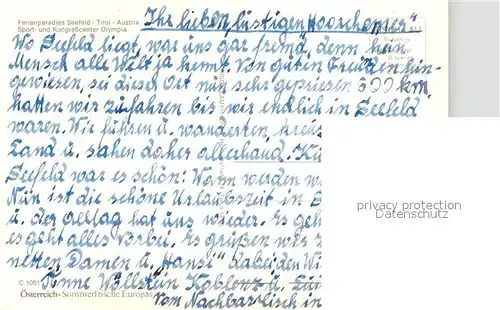 Ferienparadies Seefeld - Tirol - Austria
Sport- und Kongreßcenter Olympia
Ihr lieben, lustigen
Wo Seefeld liegt, war uns gar fremd, denn kein
Mensch alle Welt ja kennt. Von guten Freunden hin-
gewiesen, sei dieser Ort nun sehr gepriesen 500 km.
hatten wir zu fahren bis wir endlich in Seefeld
waren. Wir fuhren u. wanderten kreuz
Land u. sahen daher allerhand.
Seefeld war es schön: Wann werden
Nun ist die schöne Urlaubszeit in
u. der Alltag hat uns wieder. Es
es geht alles vorbei. Es grüßen
netten Damen u. "Hansi" dabei den
Änne Wöllstein Koblenz u.
Vom Nachbartisch in
C 1051
Österreich - Sommerfrische Europas
privacy protection
(Datenschutz)